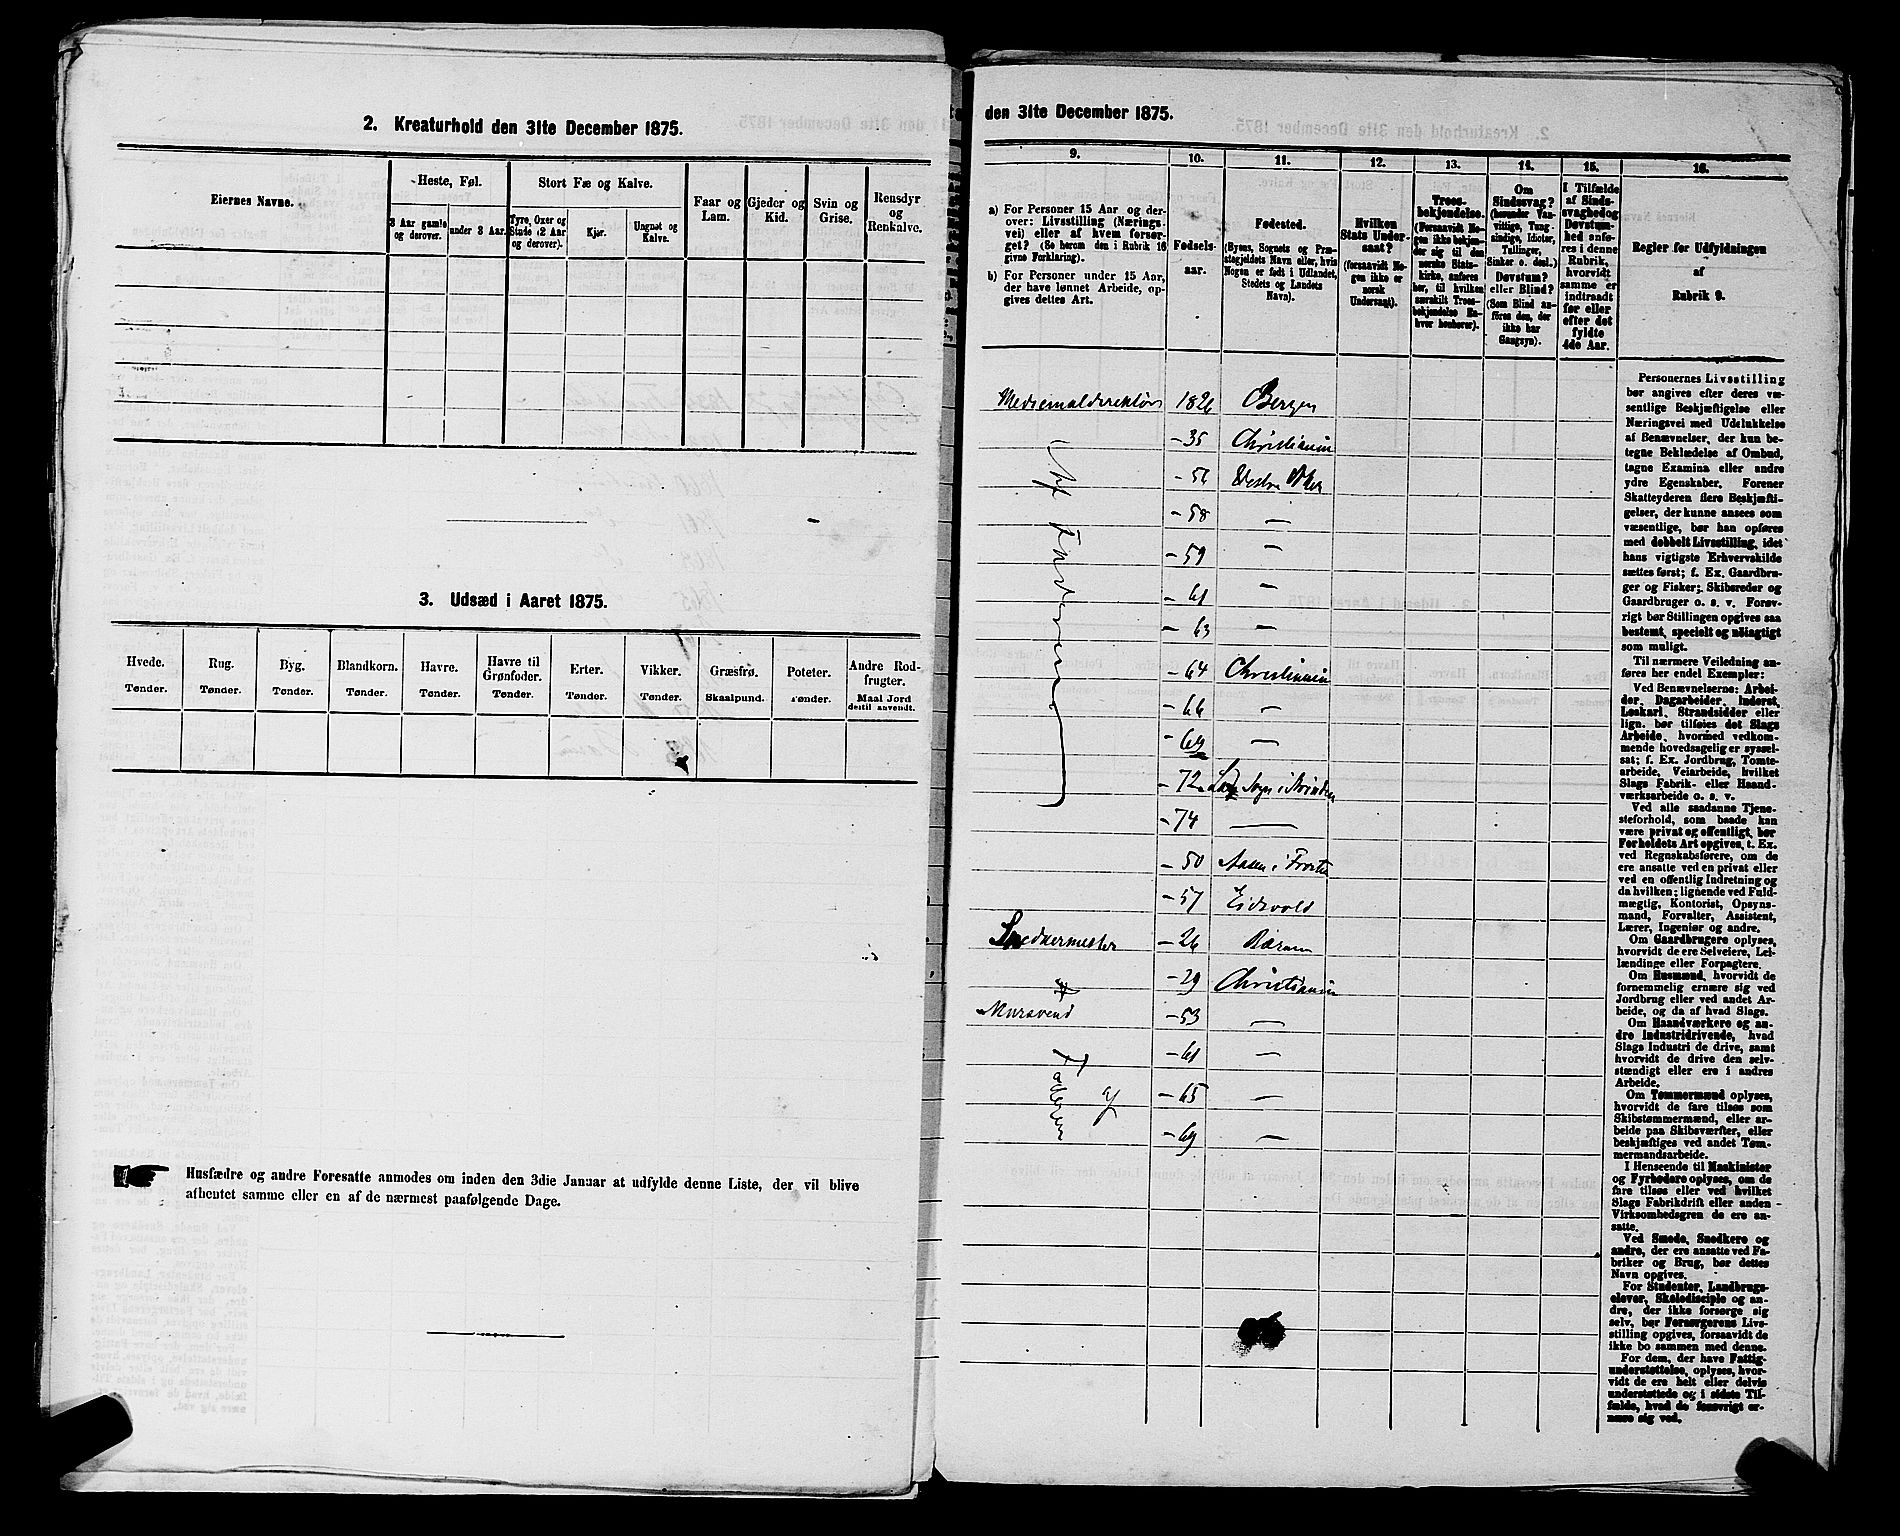 2. Kreaturhold den 31te December 1875.
Eiernes Navne.
Heste, Føl.
3 Aar gamle og derover.
under 3 Aar.
Stort Fæ og Kalve.
Tyre, Oxer og Stude (2 Aar og derover).
Kjør.
Ungnøt og Kalve.
Faar og Lam.
Gjeder og Kid.
Svin og Grise.
Rensdyr og Renkalve.
3. Udsæd i Aaret 1875.
Hvede. Tønder.
Rug. Tønder.
Byg. Tønder.
Blandkorn. Tønder.
Havre. Tønder.
Havre til Grønfoder. Tønder.
Erter. Tønder.
Vikker. Tønder.
Græsfrø. Skaalpund.
Poteter. Tønder.
Andre Rodfrugter. Maal Jord dertil anvendt.
Husfædre og andre Foresatte anmodes om inden den 3die Januar at udfylde denne Liste, der vil blive
afhentet samme eller en af de nærmest paafølgende Dage.
den 31te December 1875.
9. 10. 11. 12. 13. 14. 15. 16.
a) For Personer 15 Aar og derover: Livsstilling (Næringsvei) eller af hvem forsørget? (Se herom den i Rubrik 16 givne Forklaring).
b) For Personer under 15 Aar, der have lønnet Arbeide, opgives dettes Art.
Fødselsaar.
Fødested.
(Byens, Sognets og Præstegjeldets Navn eller, hvis Nogen er født i Udlandet, Stedets og Landets Navn).
Hvilken Stats Undersaat?
(forsaavidt Nogen ikke er norsk Undersaat).
Troesbekjendelse.
(Forsaavidt Nogen ikke bekjender sig til den norske Statskirke, anføres her, til hvilken særskilt Troesbekjendelse Enhver henhører).
Om Sindssvag? (herunder Vanvittige, Tungsindige, Idioter, Tullinger, Sinker o. desl.) Døvstum? eller Blind?
(Som Blind anføres den, der ikke har Gangsyn).
I Tilfælde af Sindssvaghed og Døvstumhed anføres i denne Rubrik, hvorvidt samme er indtraadt før eller efter det fyldte 4de Aar.
Regler for Udfyldningen
af
Rubrik 9.
Medicinaldirektør 1826 Bergen
Af Faderen
- 35 Christiania
- 56 Vestre Aker
- 58 —
- 59 —
- 61 —
- 63 —
- 64 Christiania
- 66 —
- 69 —
- 72 Sogn i Strinden
- 74 —
- 50 Aasen i Frosta
- 57 Eidsvold
Snedkermester - 26 Bærum
- 29 Christiania
Mursvend - 53 —
- 61 —
af Faderen - 65 —
- 69 —
Personernes Livsstilling
bør angives efter deres væsentlige
Beskjæftigelse eller
Næringsvei med Udelukkelse
af Benævnelser, der kun betegne
Beklædelse af Ombud,
tagne Examina eller andre
ydre Egenskaber. Forener
Skatteyderen flere Beskjæftigelser,
der kunne ansees som
væsentlige, bør han opføres
med dobbelt Livsstilling, idet
hans vigtigste Erhvervskilde
sættes først; f. Ex. Gaardbruger
og Fisker; Skibsreder og
Gaardbruger o. s. v. Forøvrigt
bør Stillingen opgives saa
bestemt, specielt og nöiagtigt
som muligt.
Til nærmere Veiledning anføres
her endel Exempler:
Ved Benævnelserne: Arbeider,
Dagarbeider, Inderst,
Løskarl, Strandsidder eller
lign. bør tilføies det Slags
Arbeide, hvormed vedkommende
hovedsagelig er sysselsat;
f. Ex. Jordbrug, Tomtearbeide,
Veiarbeide, hvilket
Slags Fabrik- eller Haandværksarbeide
o. s. v.
Ved alle saadanne Tjenesteforhold,
som baade kan
være privat og offentligt, bør
Forholdets Art opgives, t. Ex.
ved Regnskabsførere, om de
ere ansatte ved en privat eller
ved en offentlig Indretning og
da hvilken; lignende ved Fuldmægtig,
Kontorist, Opsynsmand,
Forvalter, Assistent,
Lærer, Ingeniør og andre.
Om Gaardbrugere oplyses,
hvorvidt de ere Selveiere, Leilændinge
eller Forpagtere.
Om Husmænd, hvorvidt de
fornemmelig ernære sig ved
Jordbrug eller ved andet Arbeide,
og da af hvad Slags.
Om Haandværkere og andre
Industridrivende, hvad
Slags Industri de drive, samt
hvorvidt de drive den selvstændigt
eller ere i andres
Arbeide.
Om Tømmermænd oplyses,
hvorvidt de fare tilsøs som
Skibstømmermænd, eller arbeide
paa Skibsværfter, eller
beskjæftiges ved andet Tømmermandsarbeide.
I Henseende til Maskinister
og Fyrbødere oplyses, om de
fare tilsøs eller ved hvilket
Slags Fabrikdrift eller anden
Virksomhedsgren de ere ansatte.
Ved Smede, Snedkere og
andre, der ere ansatte ved Fabriker
og Brug, bør dettes
Navn opgives.
For Studenter, Landbrugselever,
Skoledisciple og andre,
der ikke forsørge sig
selv, bør Forsørgerens Livsstilling
opgives, forsaavidt de
ikke bo sammen med denne.
For dem, der have Fattigunderstøttelse,
oplyses, hvorvidt
de ere helt eller delvis
understøttede og i sidste Tilfælde,
hvad de forøvrigt ernære
sig ved.